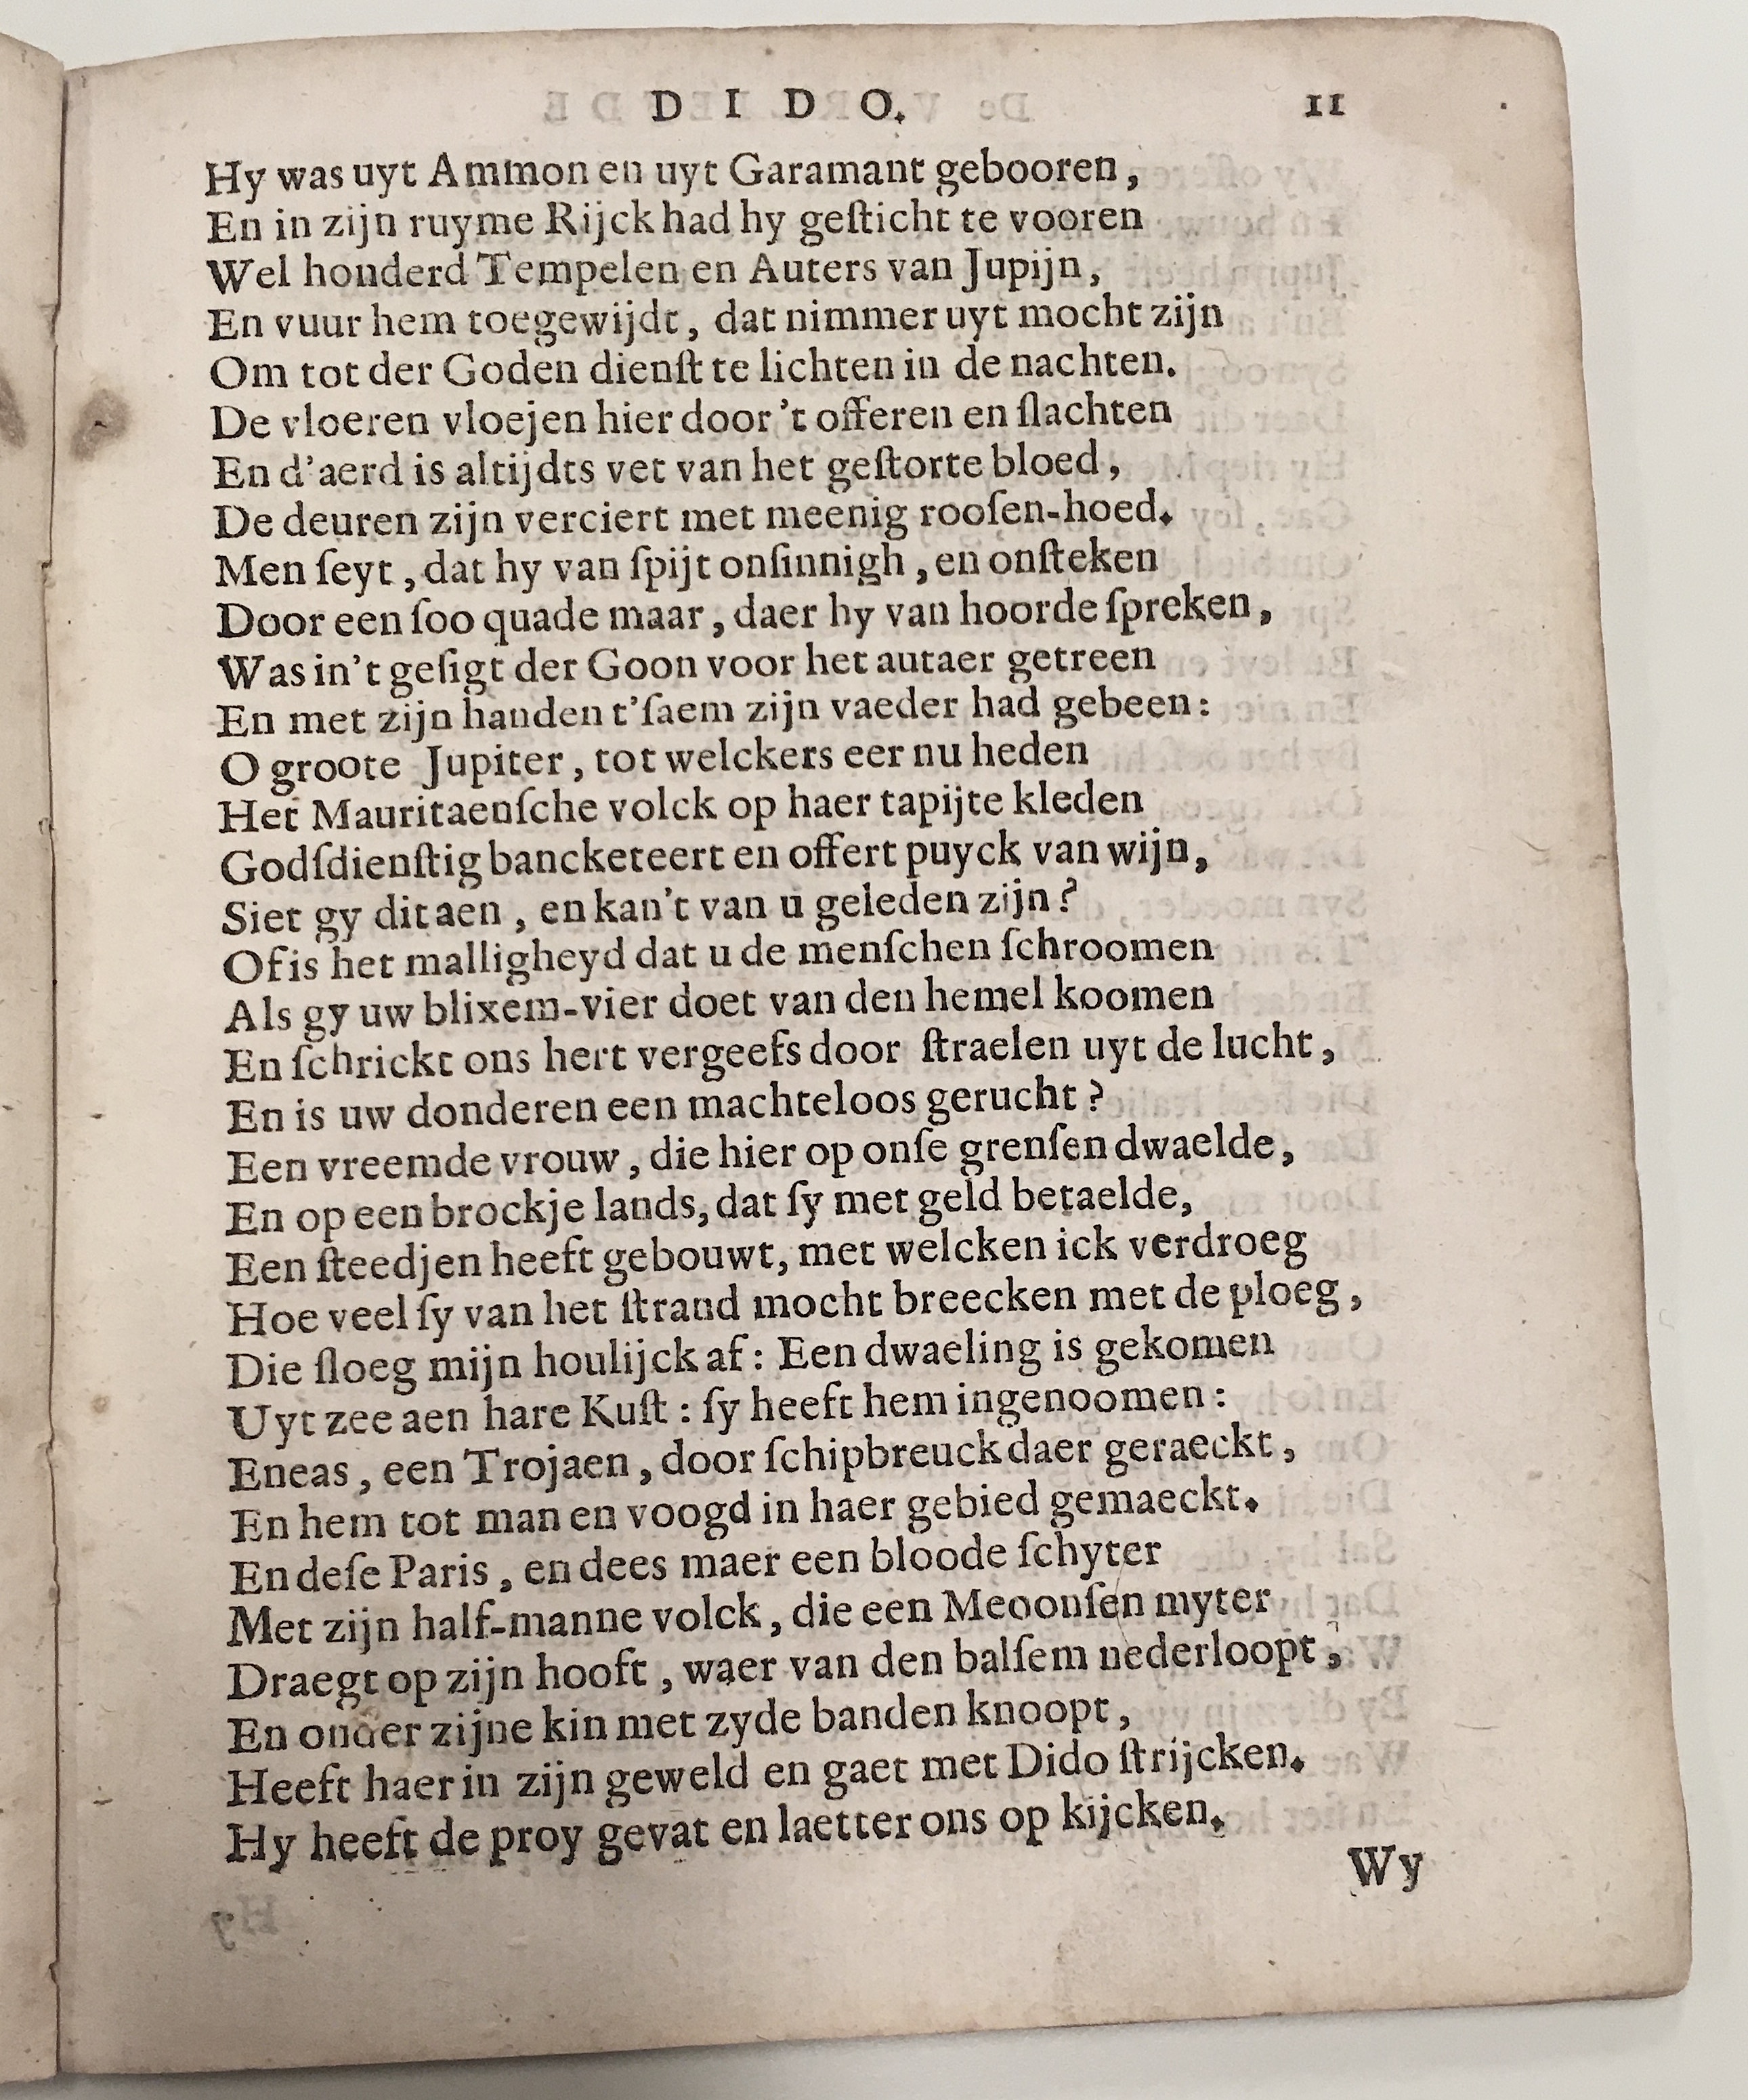 D I D O. 11
Hy was uyt Ammon en uyt Garamant gebooren,
En in zijn ruyme Rijck had hy geſticht te vooren
Wel honderd Tempelen en Auters van Jupijn,
En vuur hem toegewijdt, dat nimmer uyt mocht zijn
Om tot der Goden dienſt te lichten in de nachten.
De vloeren vloejen hier door 't offeren en ſlachten
En d'aerd is altijdts vet van het geſtorte bloed,
De deuren zijn verciert met meenig rooſen-hoed.
Men ſeyt, dat hy van ſpijt onſinnigh, en onſteken
Door een ſoo quade maar, daer hy van hoorde ſpreken,
Was in't geſigt der Goon voor het autaer getreen
En met zijn handen t'ſaem zijn vaeder had gebeen:
O groote Jupiter, tot welckers eer nu heden
Het Mauritaenſche volck op haer tapijte kleden
Godſdienſtig bancketeert en offert puyck van wijn,
Siet gy dit aen, en kan't van u geleden zijn?
Of is het malligheyd dat u de menſchen ſchroomen
Als gy uw blixem-vier doet van den hemel koomen
En ſchrickt ons hert vergeefs door ſtraelen uyt de lucht,
En is uw donderen een machteloos gerucht?
Een vreemde vrouw, die hier op onſe grenſen dwaelde,
En op een brockje lands, dat ſy met geld betaelde,
Een ſteedjen heeft gebouwt, met welcken ick verdroeg
Hoe veel ſy van het ſtrand mocht breecken met de ploeg,
Die ſloeg mijn houlijck af: Een dwaeling is gekomen
Uyt zee aen hare Kuſt: ſy heeft hem ingenoomen:
Eneas, een Trojaen, door ſchipbreuck daer geraeckt,
En hem tot man en voogd in haer gebied gemaeckt.
En deſe Paris, en dees maer een bloode ſchyter
Met zijn half-manne volck, die een Meoonſen myter
Draegt op zijn hooft, waer van den balſem nederloopt,
En onder zijne kin met zyde banden knoopt,
Heeft haer in zijn geweld en gaet met Dido ſtrijcken.
Hy heeft de proy gevat en laetter ons op kijcken.
Wy